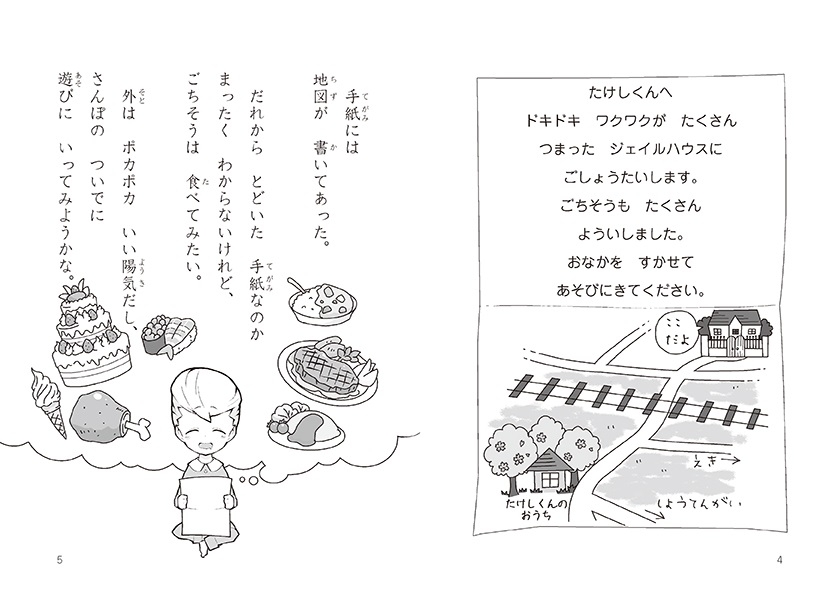 たけしくんへ
ドキドキ　ワクワクが　たくさん
つまった　ジェイルハウスに
ごしょうたいします。
ごちそうも　たくさん
よういしました。
おなかを　すかせて
あそびにきてください。
ここ
だよ
えき
しょうてんがい
たけしくんの
おうち
4
手紙には
地図が　書いてあった。
だれから　とどいた　手紙なのか
まったく　わからないけれど、
ごちそうは　食べてみたい。
外は　ポカポカ　いい陽気だし、
さんぽの　ついでに
遊びに　いってみようかな。
5